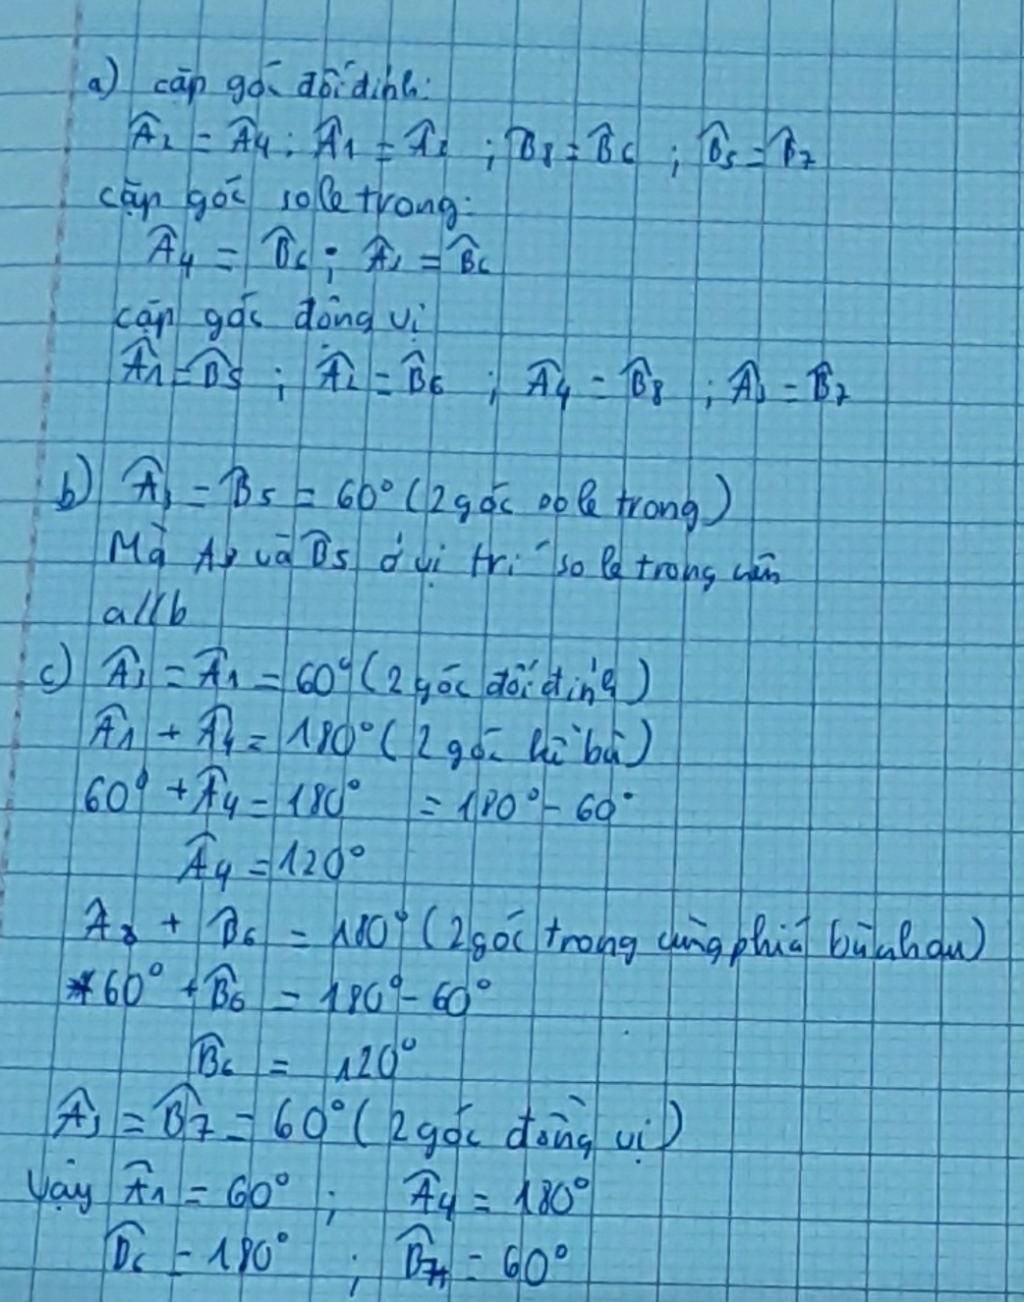 a) cặp góc đối đỉnh:
Â₂ = Â₄ ; Â₁ = Â₃ ; B̂₈ = B̂₆ ; B̂₅ = B̂₇
cặp góc so le trong:
Â₄ = B̂₆ ; Â₃ = B̂₆
cặp góc đồng vị
Â₁ = B̂₅ ; Â₂ = B̂₆ ; Â₄ = B̂₈ ; Â₃ = B̂₇
b) Â₃ = B₅ = 60° (2 góc so le trong)
Mà A₃ và B̂₅ ở vị trí so le trong nên
a//b
c) Â₃ = Â₁ = 60° (2 góc đối đỉnh)
Â₁ + Â₄ = 180° (2 góc kề bù)
60° + Â₄ = 180° = 180° - 60°
Â₄ = 120°
A₃ + B̂₆ = 180° (2 góc trong cùng phía bù nhau)
60° + B̂₆ = 180° - 60°
B̂₆ = 120°
Â₃ = B̂₇ = 60° (2 góc đồng vị)
Vậy Â₁ = 60° ; Â₄ = 180°
B̂₆ = 180° ; B̂₇ = 60°